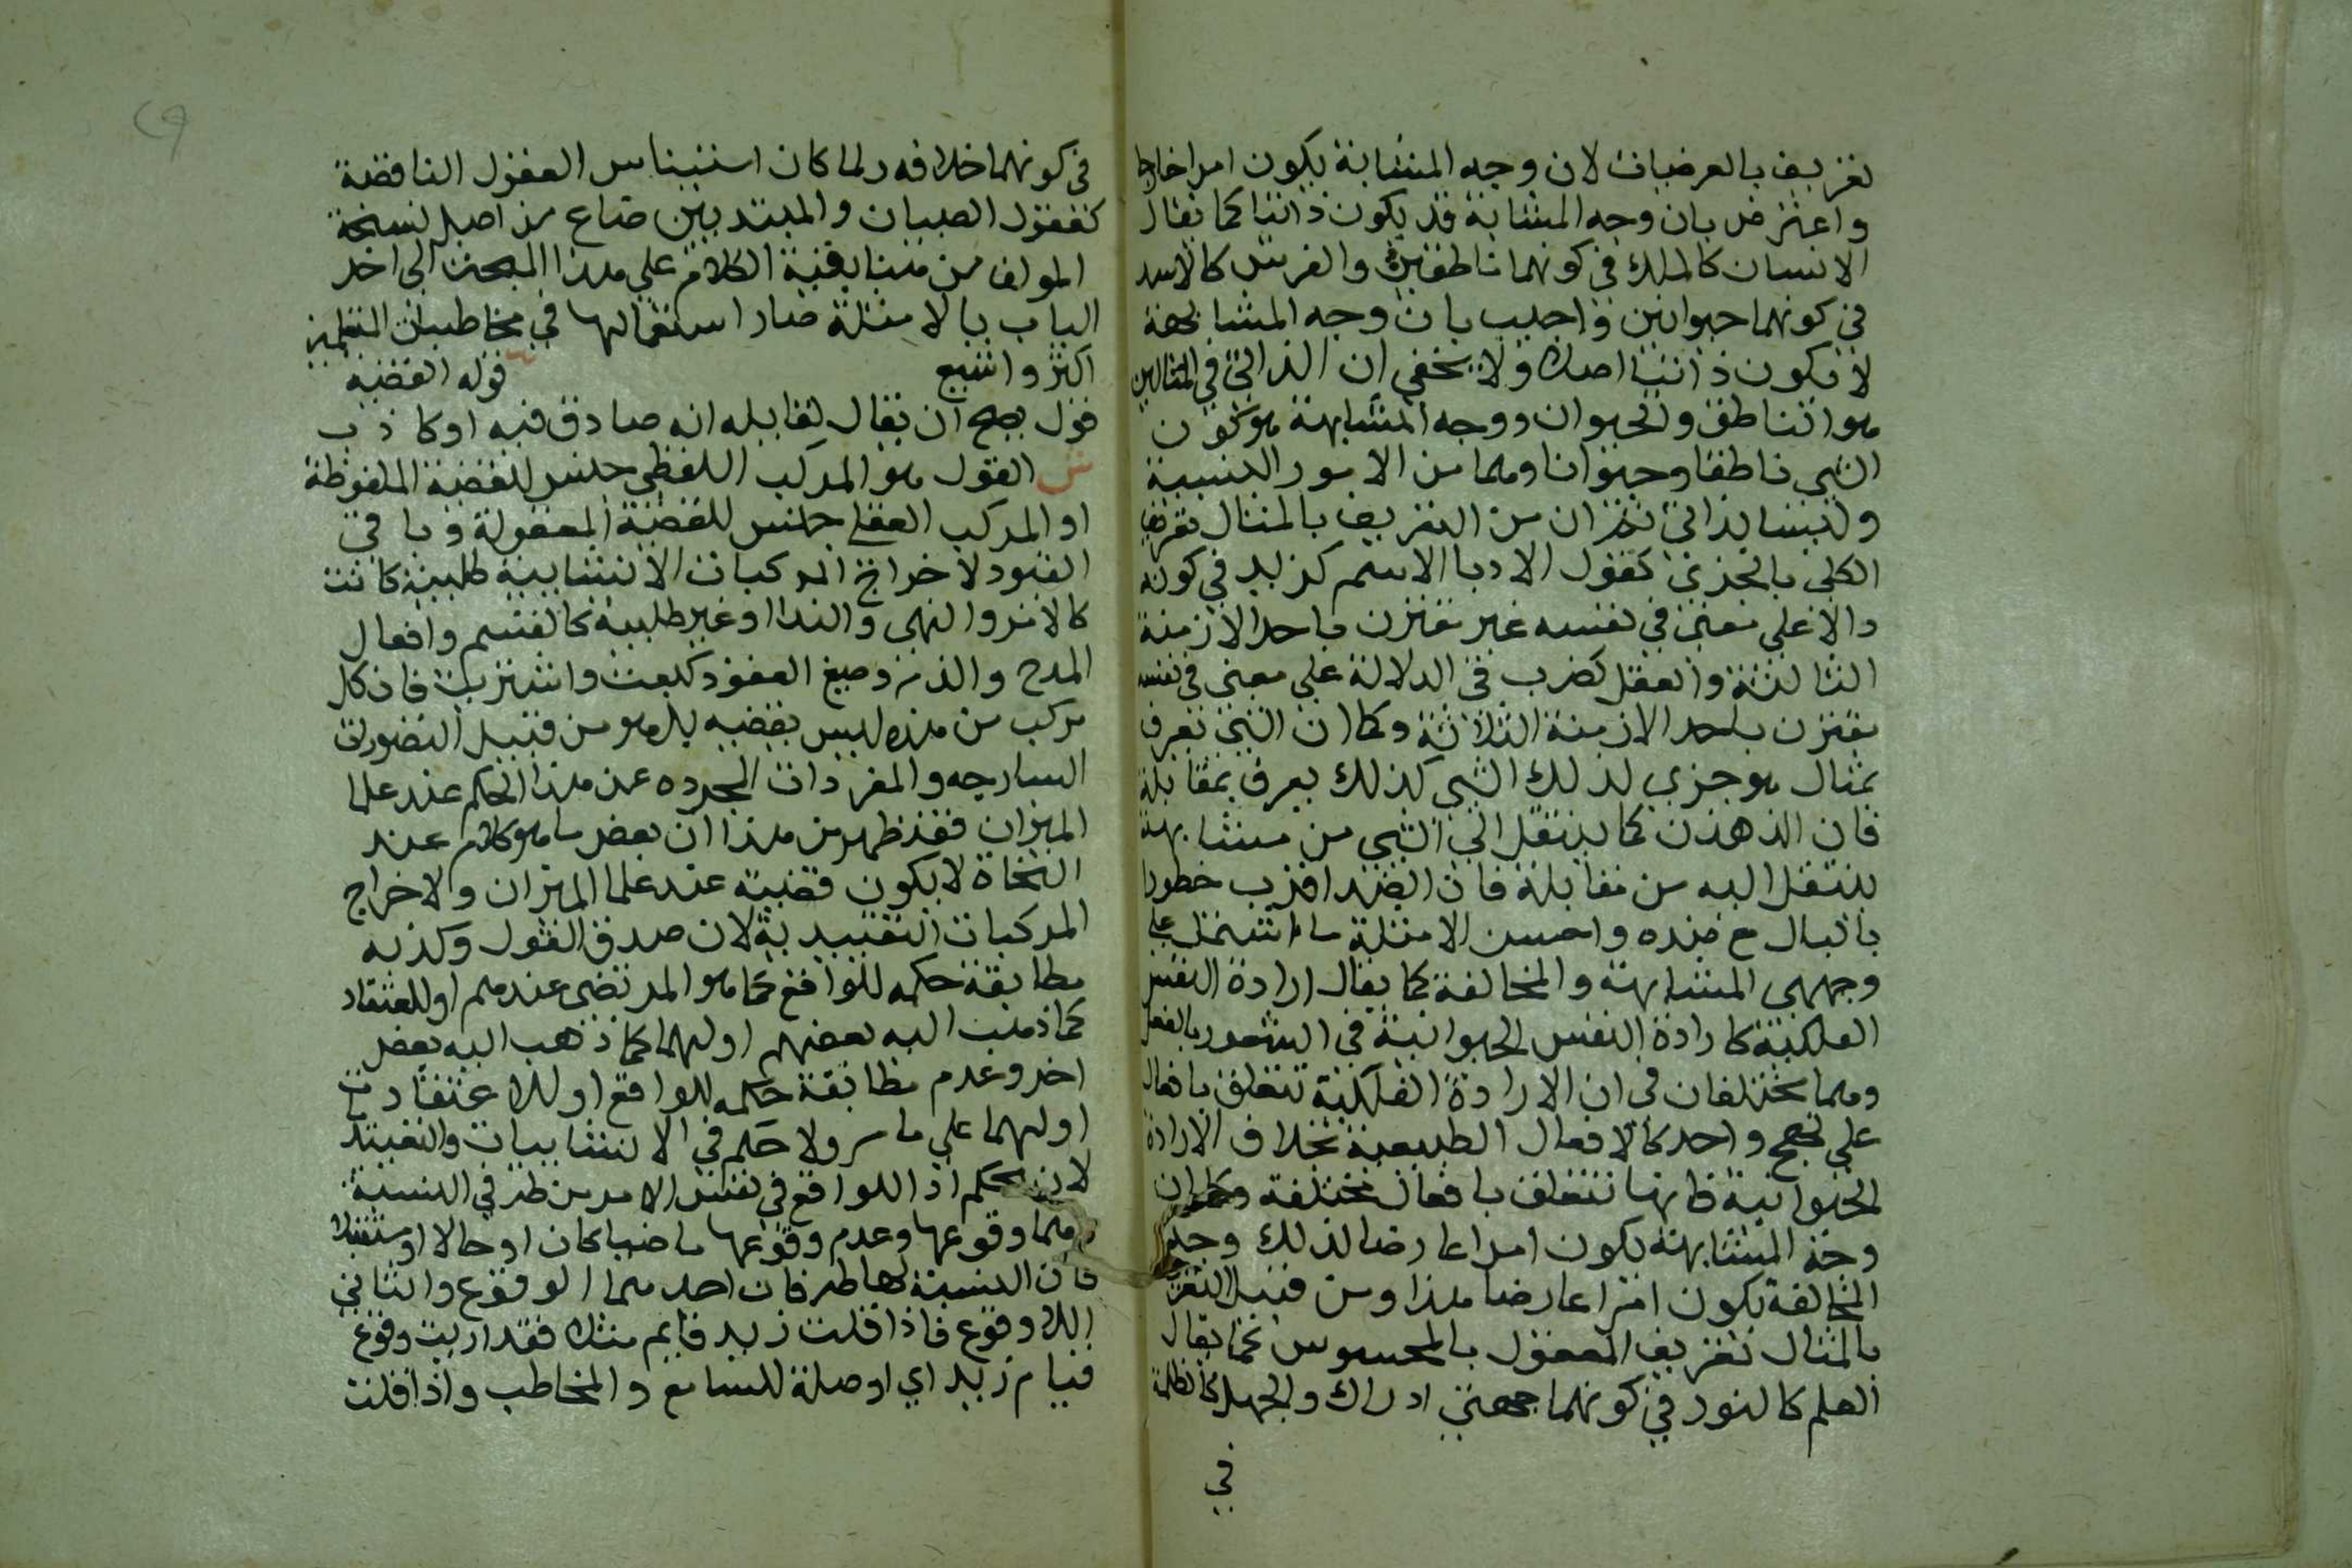 تعريف بالعرضيات لان وجه المشابهة يكون امرا خارجا
واعترض بان وجه المشابهة قد يكون ذاتيا كما يقال
الانسان كالملك في كونهما ناطقين والفرس كالاسد
في كونهما حيوانين واجيب بان وجه المشابهة
لا يكون ذاتيا اصلا ولا يخفى ان الذاتي في المثالين
هو الناطق والحيوان ووجه المشابهة هو كون
الشي ناطقا وحيوانا وهما من الامور النسبية
وليسا بذاتي ثم ان من التعريف بالمثال تعريف
الكلي بالجزي كقول الادبا الاسم كزيد في كونه
دالا علي معنى في نفسه غير مقترن باحد الازمنة
الثالثة والفعل كضرب في الدلالة علي معنى في نفسه
مقترن باحد الازمنة الثلاثة وكما ان الشي يعرف
بمثال هو جزي لذلك الشي كذلك يعرف بمقابله
فان الذهن كما ينتقل الى الشي من مشابهه
ينتقل اليه من مقابله فان الضد اقرب خطورا
بالبال مع ضده واحسن الامثلة ما اشتمل علي
وجهي المشابهة والمخالفة كما يقال ارادة النفس
الفلكية كارادة النفس الحيوانية في الشعور بالفعل
وهما يختلفان في ان الارادة الفلكية تتعلق بافعال
علي نهج واحد كالافعال الطبيعية بخلاف الارادة
الحيوانية فانها تتعلق بافعال مختلفة وكما ان
وجه المشابهة يكون امرا عارضا لذلك وجه
المخالفة يكون امرا عارضا هذا ومن قبيل التعريف
بالمثال تعريف المعقول بالمحسوس كما يقال
العلم كالنور في كونهما جمعني ادراك والجهل كالظلمة
في
في كونهما خلافه ولما كان استيناس العقول الناقصة
كعقول الصبيان والمبتديين ضاع من اصل نسخة
المولف من هنا بقية الكلام علي هذا المبحث الى اخر
الباب بالامثلة صار استعمالها في مخاطبات المتعلمين
اكثر واشيع قوله القضية
قول يصح ان يقال لقايله انه صادق فيه او كاذب
ش القول هو المركب اللفظي جنس للقضية الملفوظة
او المركب العقلي جنس للقضية المعقولة وباقي
القيود لاخراج المركبات الانشايية طلبية كانت
كالامر والنهي والندا او غير طلبية كالقسم وافعال
المدح والذم وصيغ العقود كبعت واشتريت فان كل
مركب من هذه ليس بقضيه بل هو من قبيل التصورات
الساذجه والمفردات المجرده عن هذا الحكم عند علما
الميزان فقد ظهر من هذا ان بعض ما هو كلام عند
النحاة لا يكون قضيته عند علما الميزان ولاخراج
المركبات التقييدية لان صدق القول وكذبه
مطابقة حكمه للواقع كما هو المرتضى عندهم او للاعتقاد
كما ذهب اليه بعضهم او لهما كما ذهب اليه بعض
اخر وعدم مطابقة حكمه للواقع او للاعتقاد
او لهما علي ما مر ولا حكم في الانشاييات والتقييد
لان الحكم اذا الواقع في نفس الامر من طرفي النسبة
وهما وقوعها وعدم وقوعها ماضيا كان او حالا او مستقبلا
فان النسبة لها طرفان احدهما الوقوع والثاني
اللاوقوع فاذا قلت زيد قايم مثلا فقد اديت وقوع
قيام زيد اي اوصلة للسامع والمخاطب واذا قلت